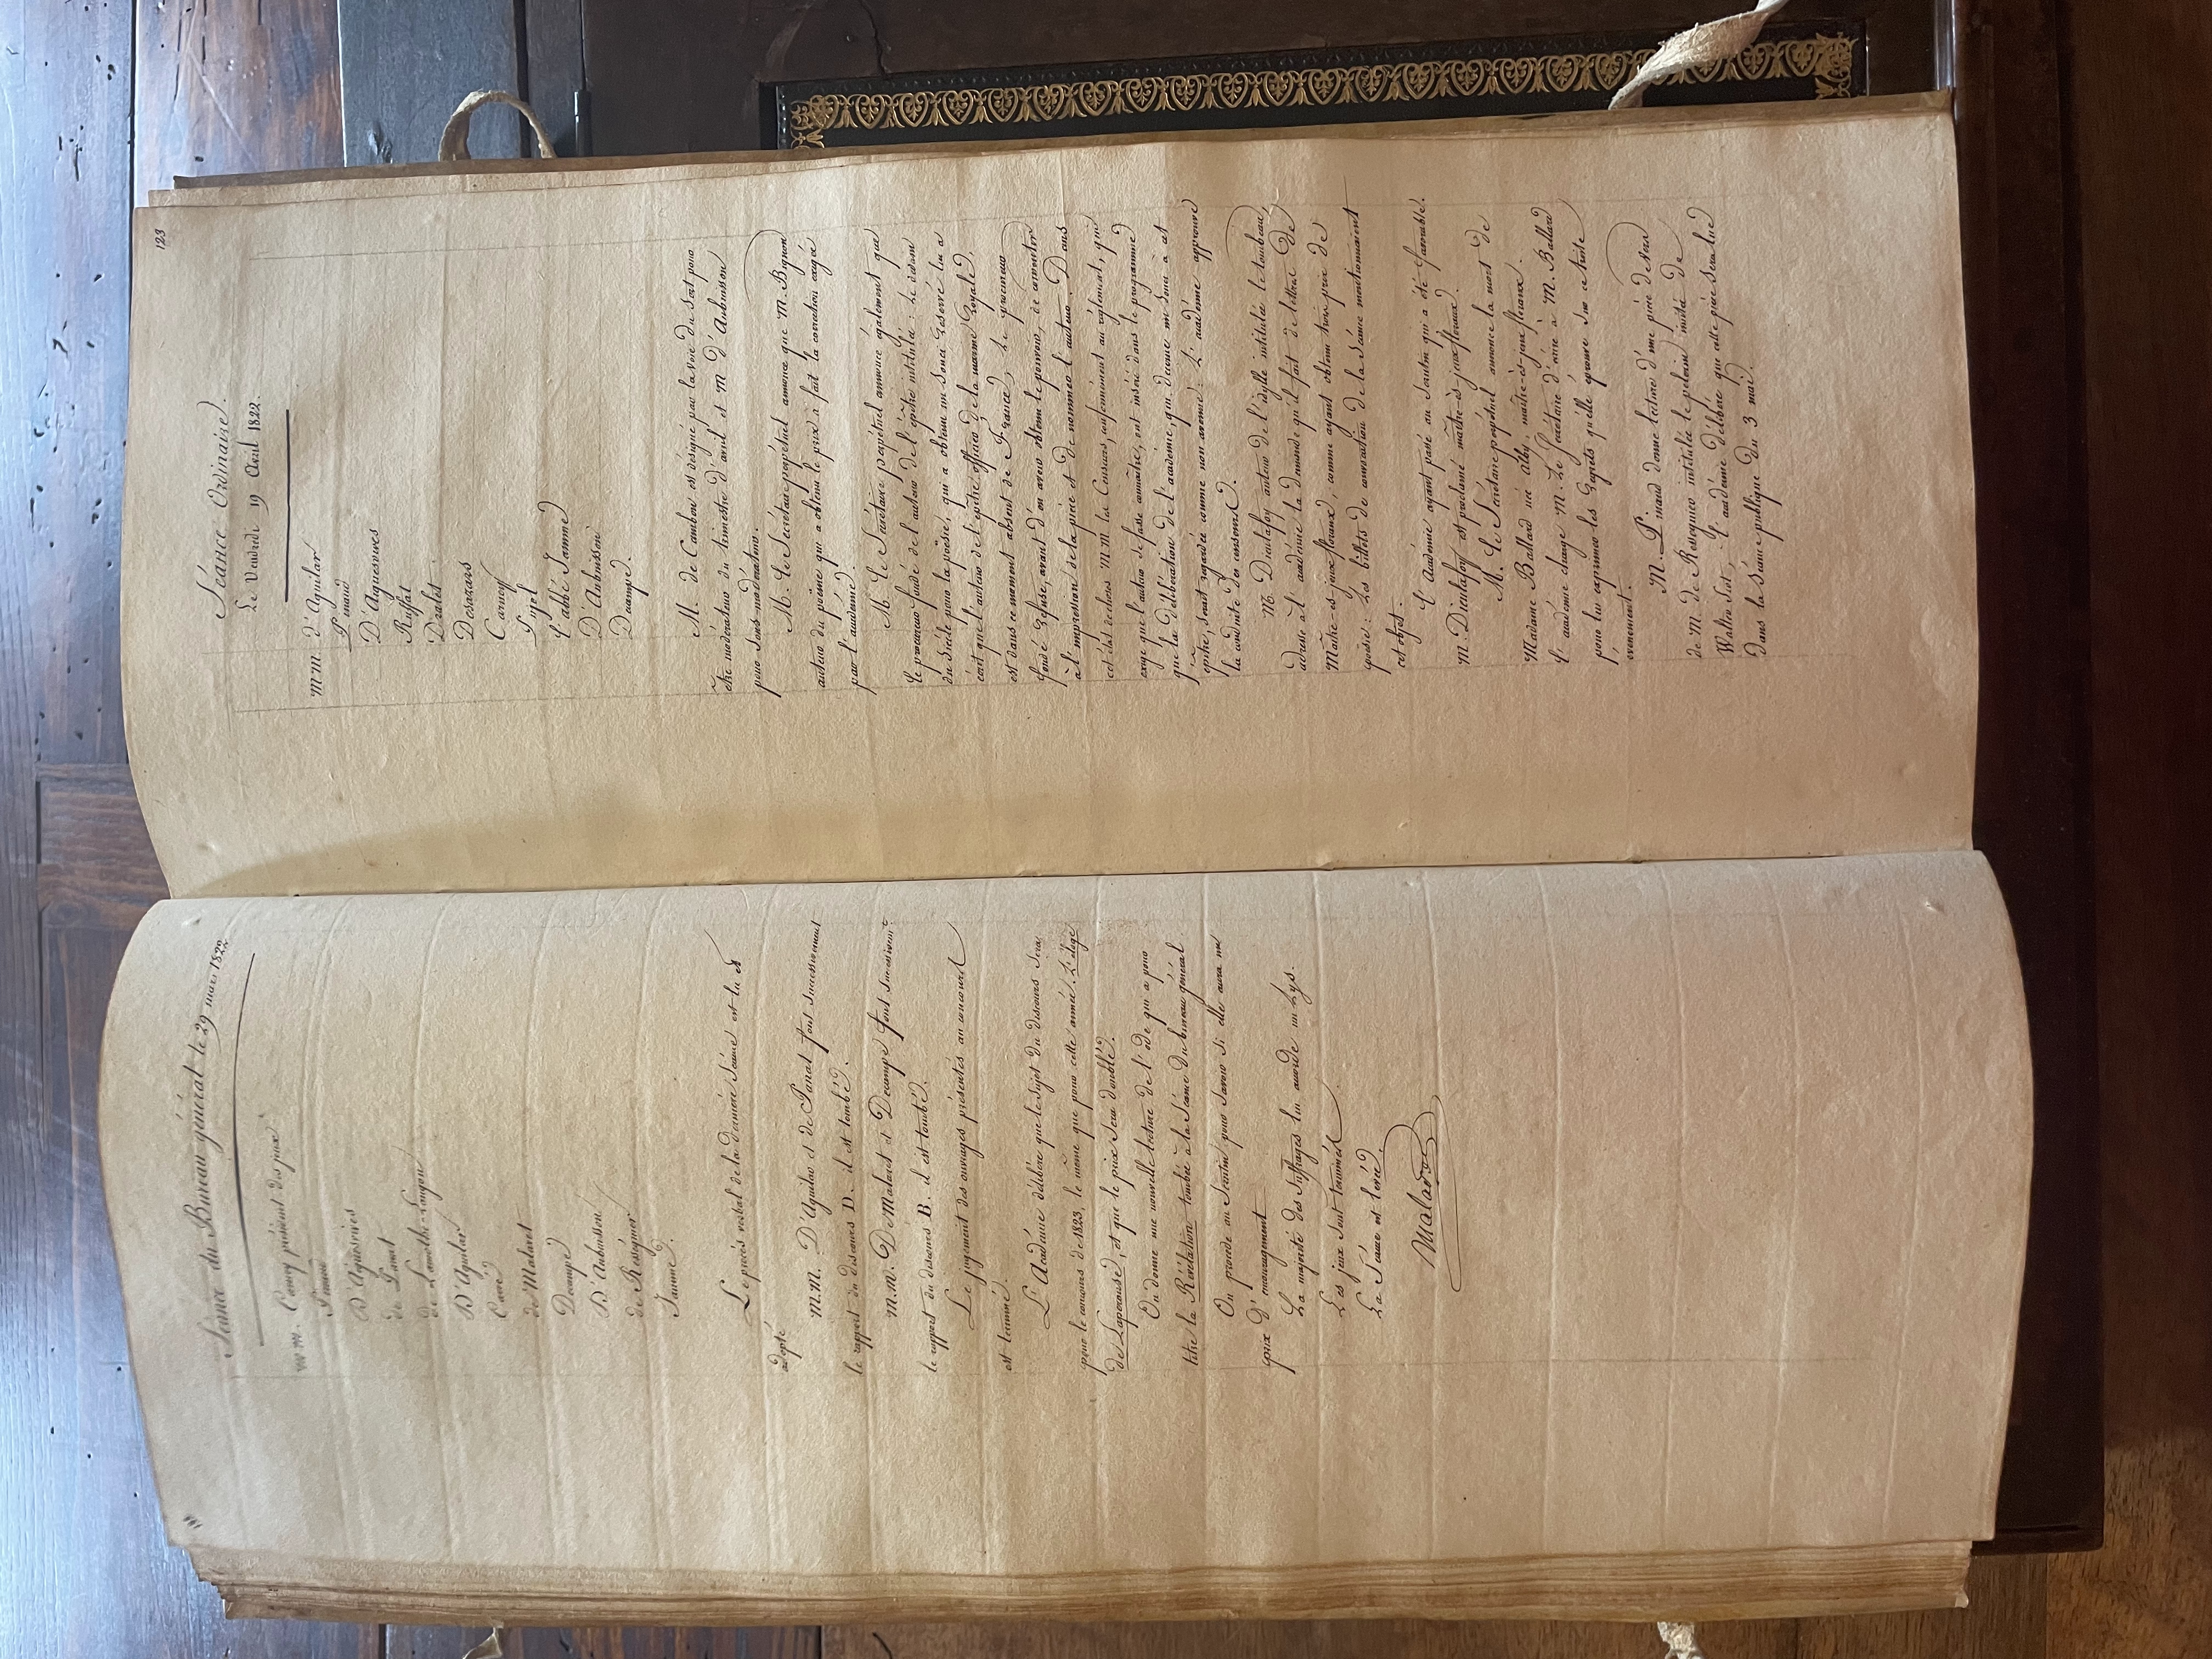 Séance du Bureau général le 29 mars 1822
m.m. président des jeux
Pinaud
D'Aguesvives
de Panat
de Lamothe-Langon
D'Aguilar
Carré
de Malaret
Decampe
D'Aubuisson
de Rességuier
Jamme.
Le procès verbal de la dernière séance est lu et
adopté
m.m. D'Aguilar et de Panat font successivement
le rapport du discours D. il est tombé.
m.m. De Malaret et Decampe font successivem.t
le rapport du discours B. il est tombé.
Le jugement des ouvrages présentés au concours
est terminé.
L'Académie délibère que le sujet du discours sera
pour le concours de 1823, le même que pour cette année, L'éloge
de Laperouse, et que le prix sera doublé.
On donne une nouvelle lecture de l'ode qui a pour
titre la Révélation tombée à la séance du bureau général
On procède au scrutin pour savoir si elle aura un
prix d'encouragement
La majorité des suffrages lui accorde un Lys.
Les jeux sont terminés
La Séance est levée.
Malaret
123
Séance Ordinaire.
Le Vendredi 19 Avril 1822.
m.m. d'Aguilar
Pinaud
D'Aguesvives
Ruffat
Dralet
Desazars
Carney
Pujol
l'abbé Jamme
D'Aubuisson
Decampe.
M. de Cambon est désigné par la voie du sort pour
être modérateur du trimestre d'avril et M D'Aubuisson
pour sous-modérateur.
M. le Secrétaire perpétuel annonce que M. Bignon
auteur du poëme qui a obtenu le prix a fait la correction exigée
par l'académie.
M. le Secrétaire perpetuel annonce également que
le procureur fondé de l'auteur de l'epitre intitulée: le dédain
du siècle pour la poësie, qui a obtenu un souci reservé lui a
écrit que l'auteur de l'epitre officier de la marine Royale,
est dans ce moment absent de France, le procureur
fondé refuse, avant d'en avoir obtenu le pouvoir, de consentir
à l'impression de la pièce et de nommer l'auteur. Dans
cet état de choses MM les Censeurs, conformément au réglement, qui
exige que l'auteur se fasse connaître, ont inséré dans le programme
que la délibération de l'académie, qui décerne un souci à cet
epitre, serait regardée comme non avenue: L'académie approuve
la conduite des censeurs.
M Dieulafoy auteur de l'idylle intitulée le tombeau,
adresse à l'académie la demande qu'il fait de lettres de
Maître-ès-jeux floraux, comme ayant obtenu trois prix de
poësie: Les billets de convocation de la séance mentionnaient
cet objet.
L'Académie ayant passé au scrutin qui a été favorable.
M. Dieulafoy est proclamé maître-ès-jeux floraux.
M. le Secrétaire perpétuel annonce la mort de
Madame Ballard née Alby, maître-ès-jeux floraux.
L'académie charge M. le Secrétaire d'écrire à M. Ballard
pour lui exprimer les regrets qu'elle éprouve sur ce triste
évenement.
M. Pinaud donne lecture d'une pièce de vers
de M. de Resseguier intitulée le pelerin, imité de
Walter Scot; L'académie délibère que cette pièce sera lue
dans la séance publique du 3 mai.